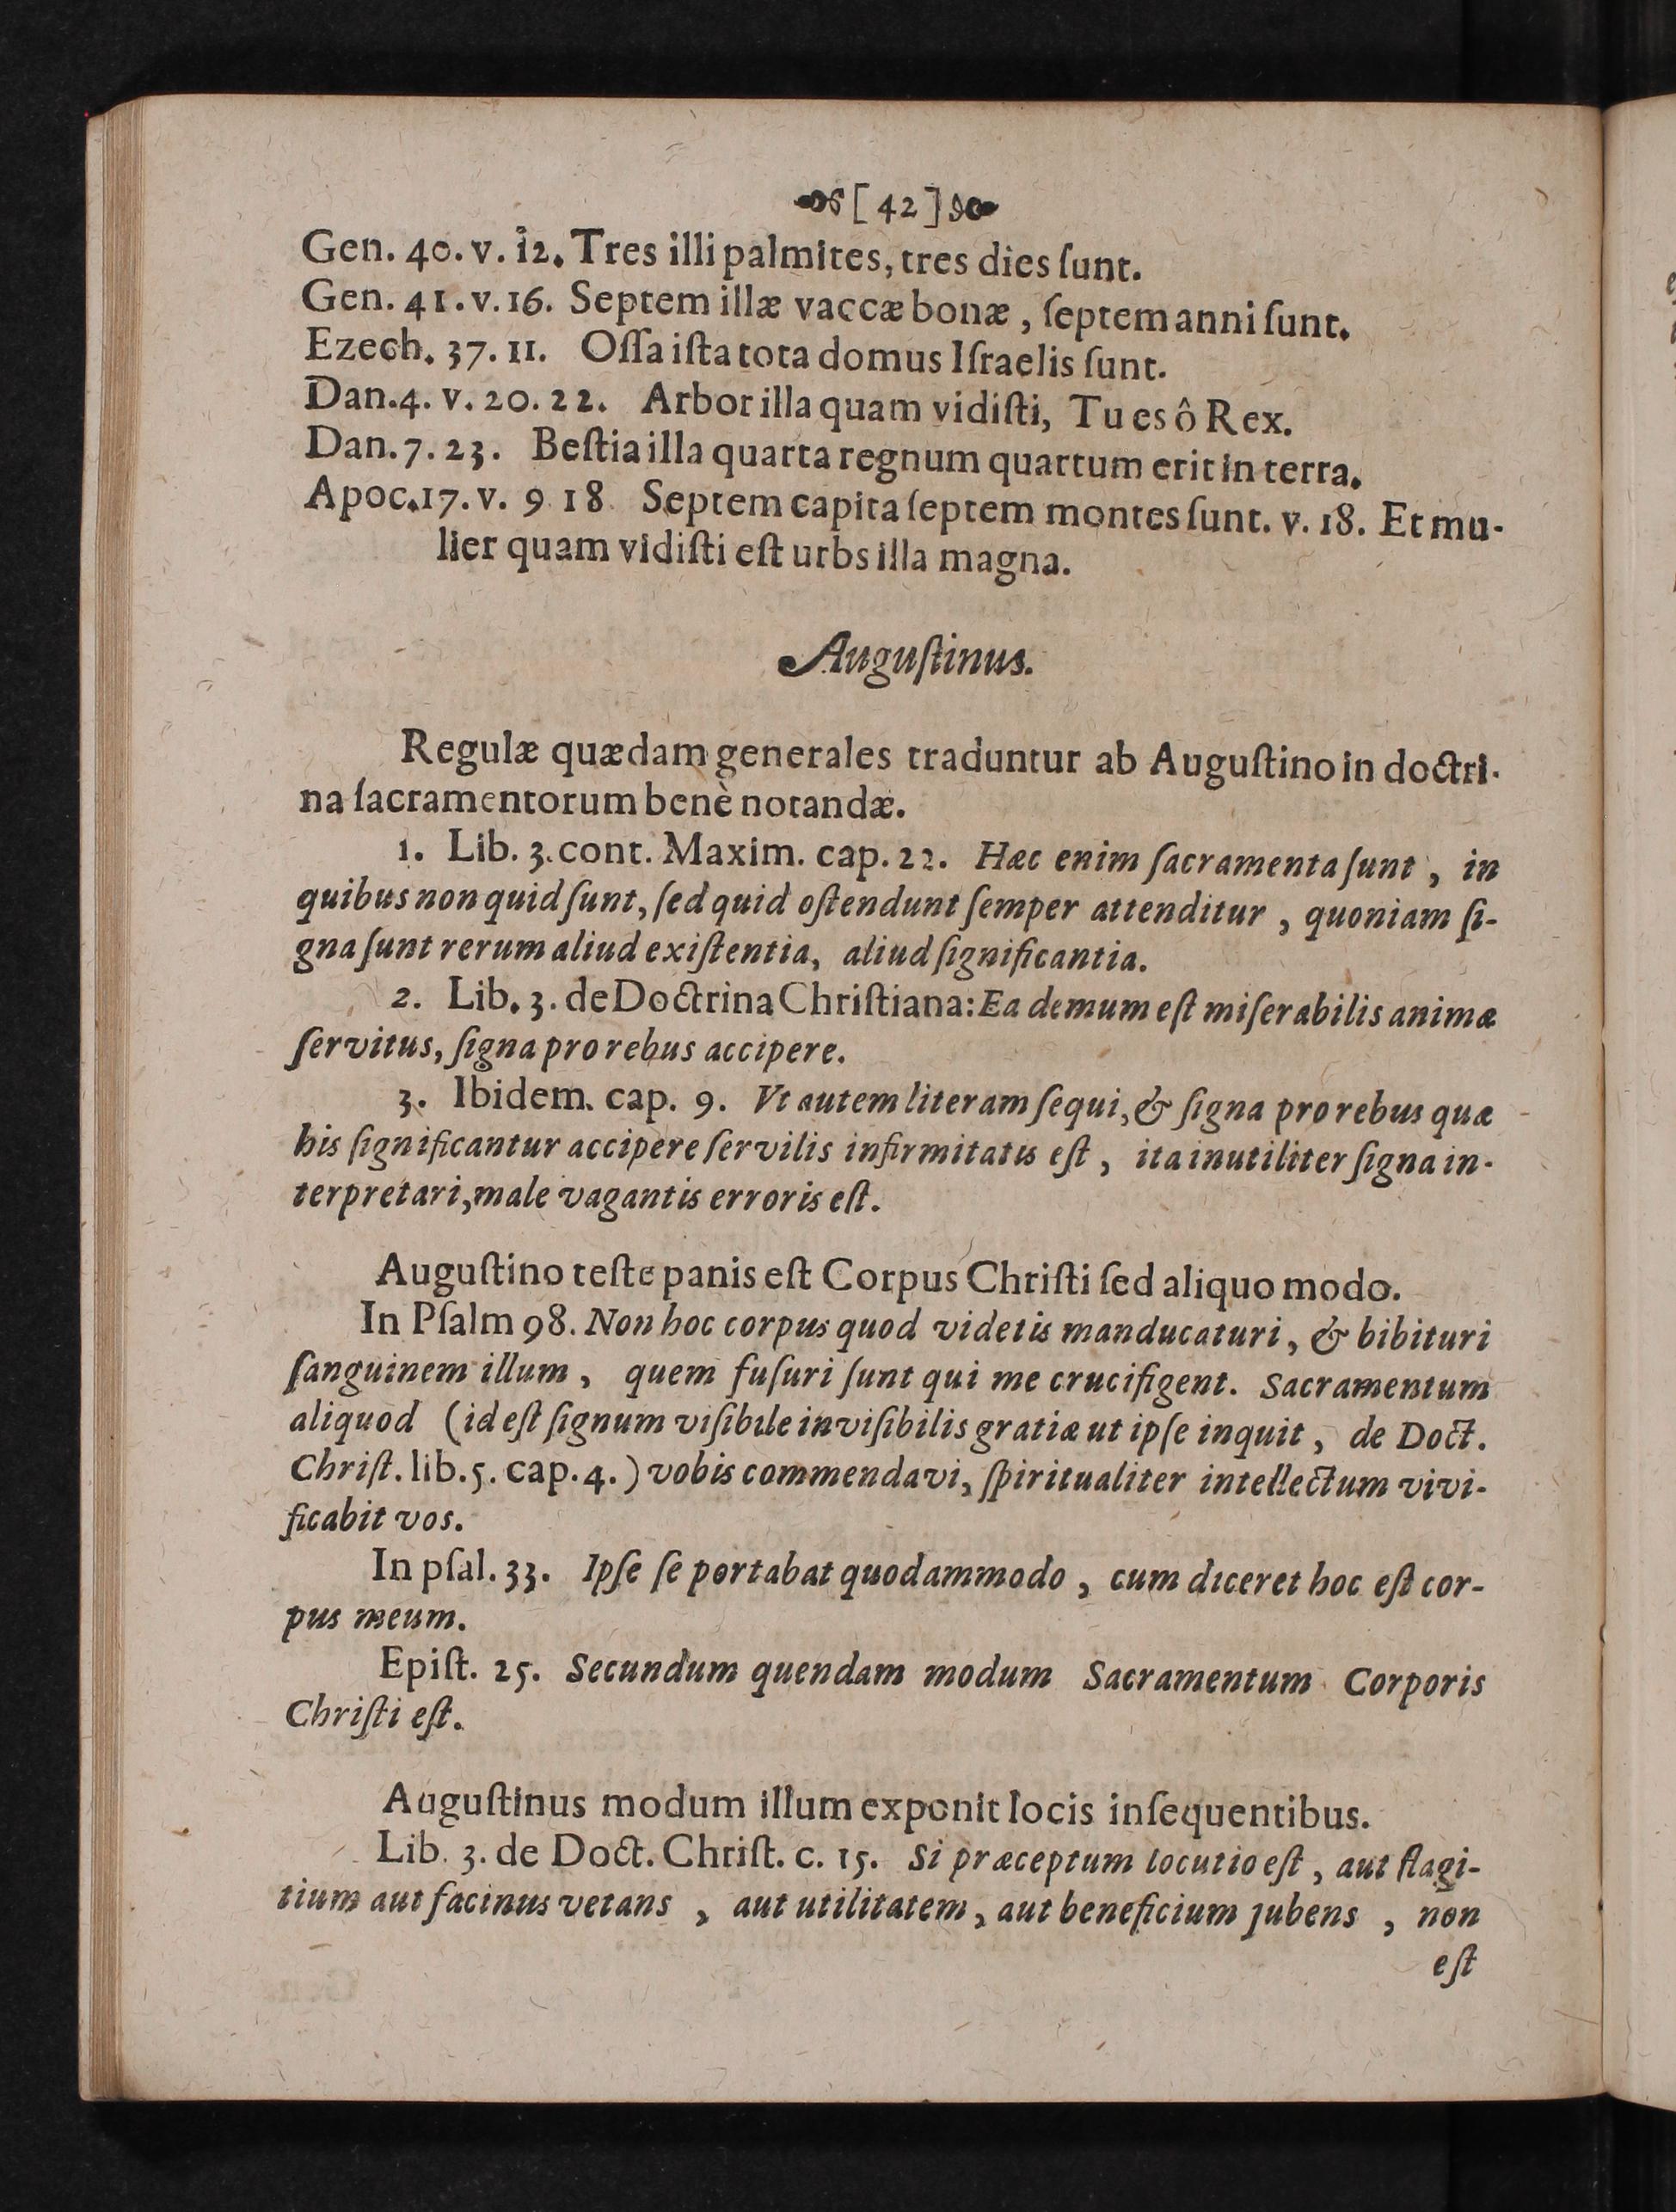 [ 42 ]
Gen. 40. v. 12. Tres illi palmites, tres dies ſunt.
Gen. 41. v. 16. Septem illæ vaccæ bonæ, ſeptem anni ſunt.
Ezech. 37. 11. Oſſa iſta tota domus Iſraelis ſunt.
Dan. 4. v. 20. 22. Arbor illa quam vidiſti, Tu es ô Rex.
Dan. 7. 23. Beſtia illa quarta regnum quartum erit in terra.
Apoc. 17. v. 9 18 Septem capita ſeptem montes ſunt. v. 18. Et mu-
lier quam vidiſti eſt urbs illa magna.
Auguſtinus.
Regulæ quædam generales traduntur ab Auguſtino in doctri-
na ſacramentorum benè notandæ.
1. Lib. 3. cont. Maxim. cap. 22. Hæc enim ſacramenta ſunt, in
quibus non quid ſunt, ſed quid oſtendunt ſemper attenditur, quoniam ſi-
gna ſunt rerum aliud exiſtentia, aliud ſignificantia.
2. Lib. 3. de Doctrina Chriſtiana: Ea demum eſt miſerabilis animæ
ſervitus, ſigna pro rebus accipere.
3. Ibidem. cap. 9. Vt autem literam ſequi, & ſigna pro rebus quæ
his ſignificantur accipere ſervilis infirmitatis eſt, ita inutiliter ſigna in-
terpretari, male vagantis erroris eſt.
Auguſtino teſte panis eſt Corpus Chriſti ſed aliquo modo.
In Pſalm 98. Non hoc corpus quod videtis manducaturi, & bibituri
ſanguinem illum, quem fuſuri ſunt qui me crucifigent. Sacramentum
aliquod (id eſt ſignum viſibile inviſibilis gratiæ ut ipſe inquit, de Doct.
Chriſt. lib. 5. cap. 4.) vobis commendavi, ſpiritualiter intellectum vivi-
ficabit vos.
In pſal. 33. Ipſe ſe portabat quodammodo, cum diceret hoc eſt cor-
pus meum.
Epiſt. 25. Secundum quendam modum Sacramentum Corporis
Chriſti eſt.
Auguſtinus modum illum exponit locis inſequentibus.
Lib. 3. de Doct. Chriſt. c. 15. Si præceptum locutio eſt, aut flagi-
tium aut facinus vetans, aut utilitatem, aut beneficium jubens, non
eſt